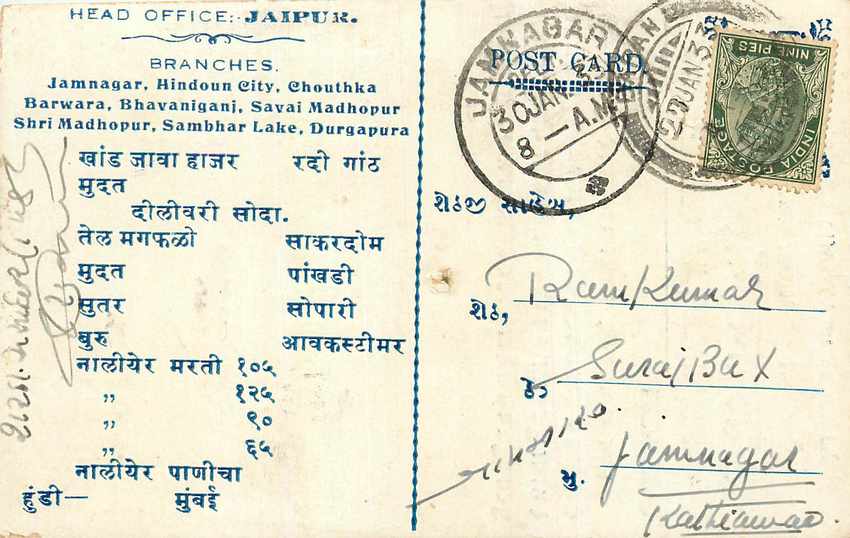 HEAD OFFICE: JAIPUR.
BRANCHES.
Jamnagar, Hindoun City, Chouthka
Barwara, Bhavaniganj, Savai Madhopur
Shri Madhopur, Sambhar Lake, Durgapura
खांड जावा हाजर रदी गांठ
मुदत
दीलीवरी सोदा.
तेल मगफळी साकरदोम
मुदत पांखडी
सुतर सोपारी
बुरु आवकस्टीमर
नालीयेर मरती १०५
„ १२५
„ ९०
„ ६५
नालीयेर पाणीचा
हुंडी— मुंबई
POST CARD.
JAMNAGAR
30JAN.
8 — A.M
JAN 3
INDIA POSTAGE
NINE PIES
શેઠજી સાહેબ,
શેઠ, Ram Kumar
ઠે. Suraj Bux
મુ. Jamnagar
Kathiawar